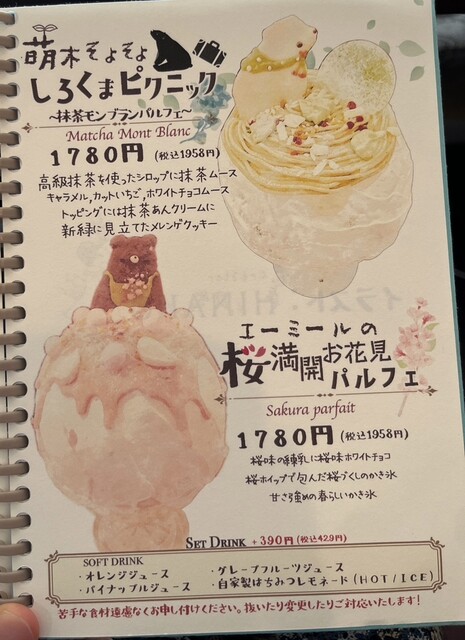 萌木そよそよ
しろくまピクニック
～抹茶モンブランパルフェ～
Matcha Mont Blanc
1780円 (税込1958円)
高級抹茶を使ったシロップに抹茶ムース
キャラメル,カットいちご,ホワイトチョコムース
トッピングには抹茶あんクリームに
新緑に見立てたメレンゲクッキー
エーミールの
桜満開お花見
パルフェ
Sakura parfait
1780円 (税込1958円)
桜味の練乳に桜味ホワイトチョコ
桜ホイップで包んだ桜づくしのかき氷
甘さ強めの春らしいかき氷
SET DRINK +390円 (税込429円)
SOFT DRINK
・オレンジジュース
・パイナップルジュース
・グレープフルーツジュース
・自家製はちみつレモネード(HOT/ICE)
苦手な食材遠慮なくお申し付けください。抜いたり変更したりご対応いたします!